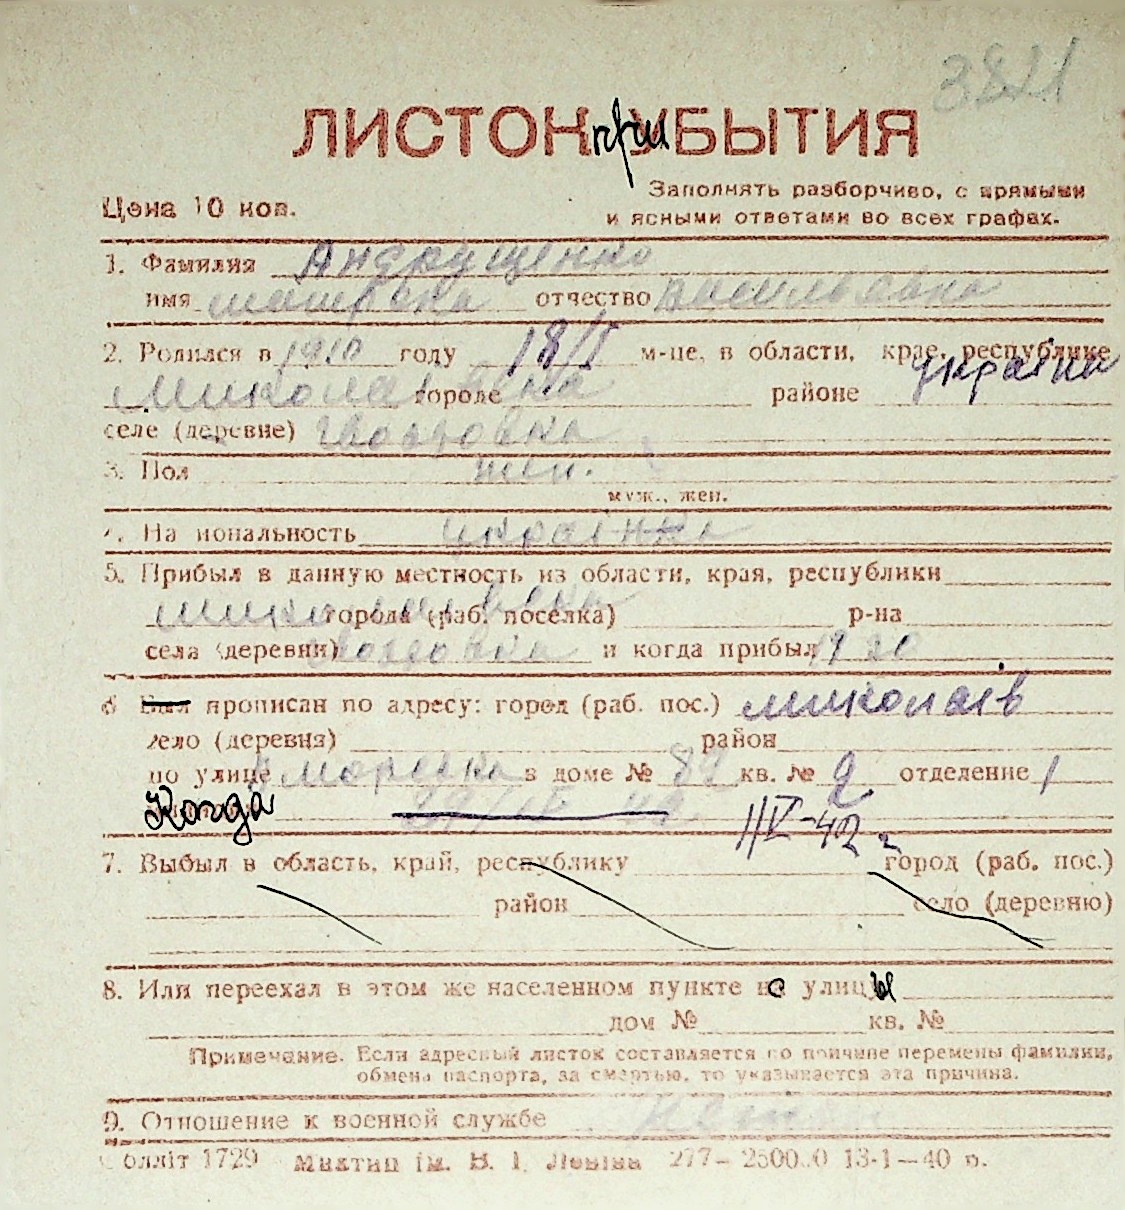 3821
ЛИСТОК при УБЫТИЯ
Цена 10 коп.
Заполнять разборчиво, с прямыми
и ясными ответами во всех графах.
1. Фамилия Андрущенко
имя Матрена отчество Васильевна
2. Родился в 1910 году 18/I м-це, в области, крае, республике
Миколаївска городе районе україна
селе (деревне)
3. Пол жен.
муж., жен.
4. Национальность українка
5. Прибыл в данную местность из области, края, республики
Миколаївска города (раб. поселка) р-на
села (деревни) и когда прибыл 1930
6 Был прописан по адресу: город (раб. пос.) миколаїв
село (деревня) район
по улице в доме № 82 кв. № 2 отделение 1
Когда 42 г
7. Выбыл в область, край, республику город (раб. пос.)
район село (деревню)
8. Или переехал в этом же населенном пункте с улицы
дом № кв. №
Примечание. Если адресный листок составляется по причине перемены фамилии,
обмена паспорта, за смертью, то указывается эта причина.
9. Отношение к военной службе
Облліт 1729 Миктип ім. В. І. Леніна 277— 13-1—40 р.